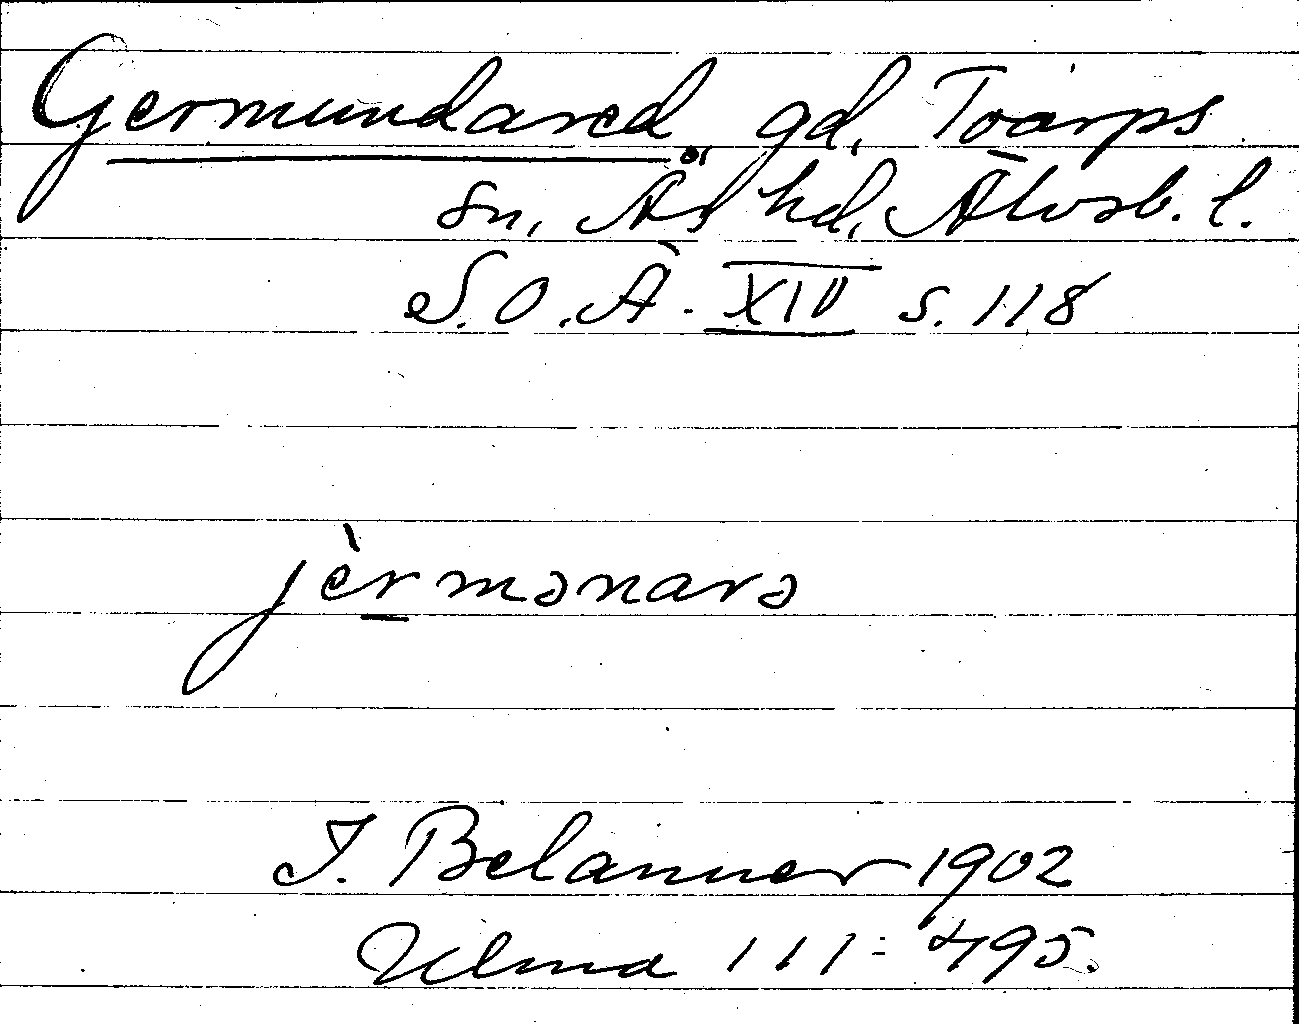 Germundared gd, Toarps
sn, Ås hd, Älvsb. l.
S.O.Ä. XIV s. 118
jèrmənarə
T. Belanner 1902
Ulma 111:495.